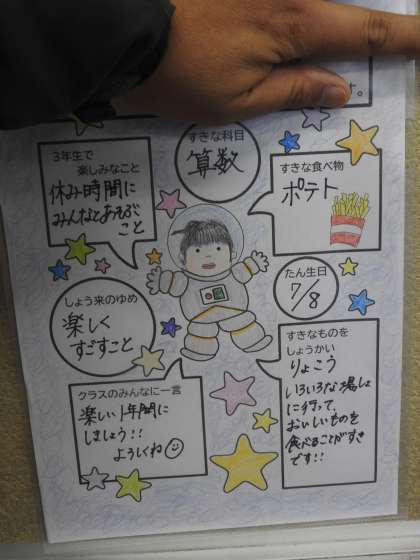 す。
すきな科目
算数
3年生で
楽しみなこと
休み時間に
みんなとあそぶ
こと
すきな食べ物
ポテト
たん生日
7/8
しょう来のゆめ
楽しく
すごすこと
すきなものを
しょうかい
りょこう
いろいろな場しょ
に行って、
おいしいものを
食べることがすき
です!!
クラスのみんなに一言
楽しい1年間に
しましょう!!
よろしくね